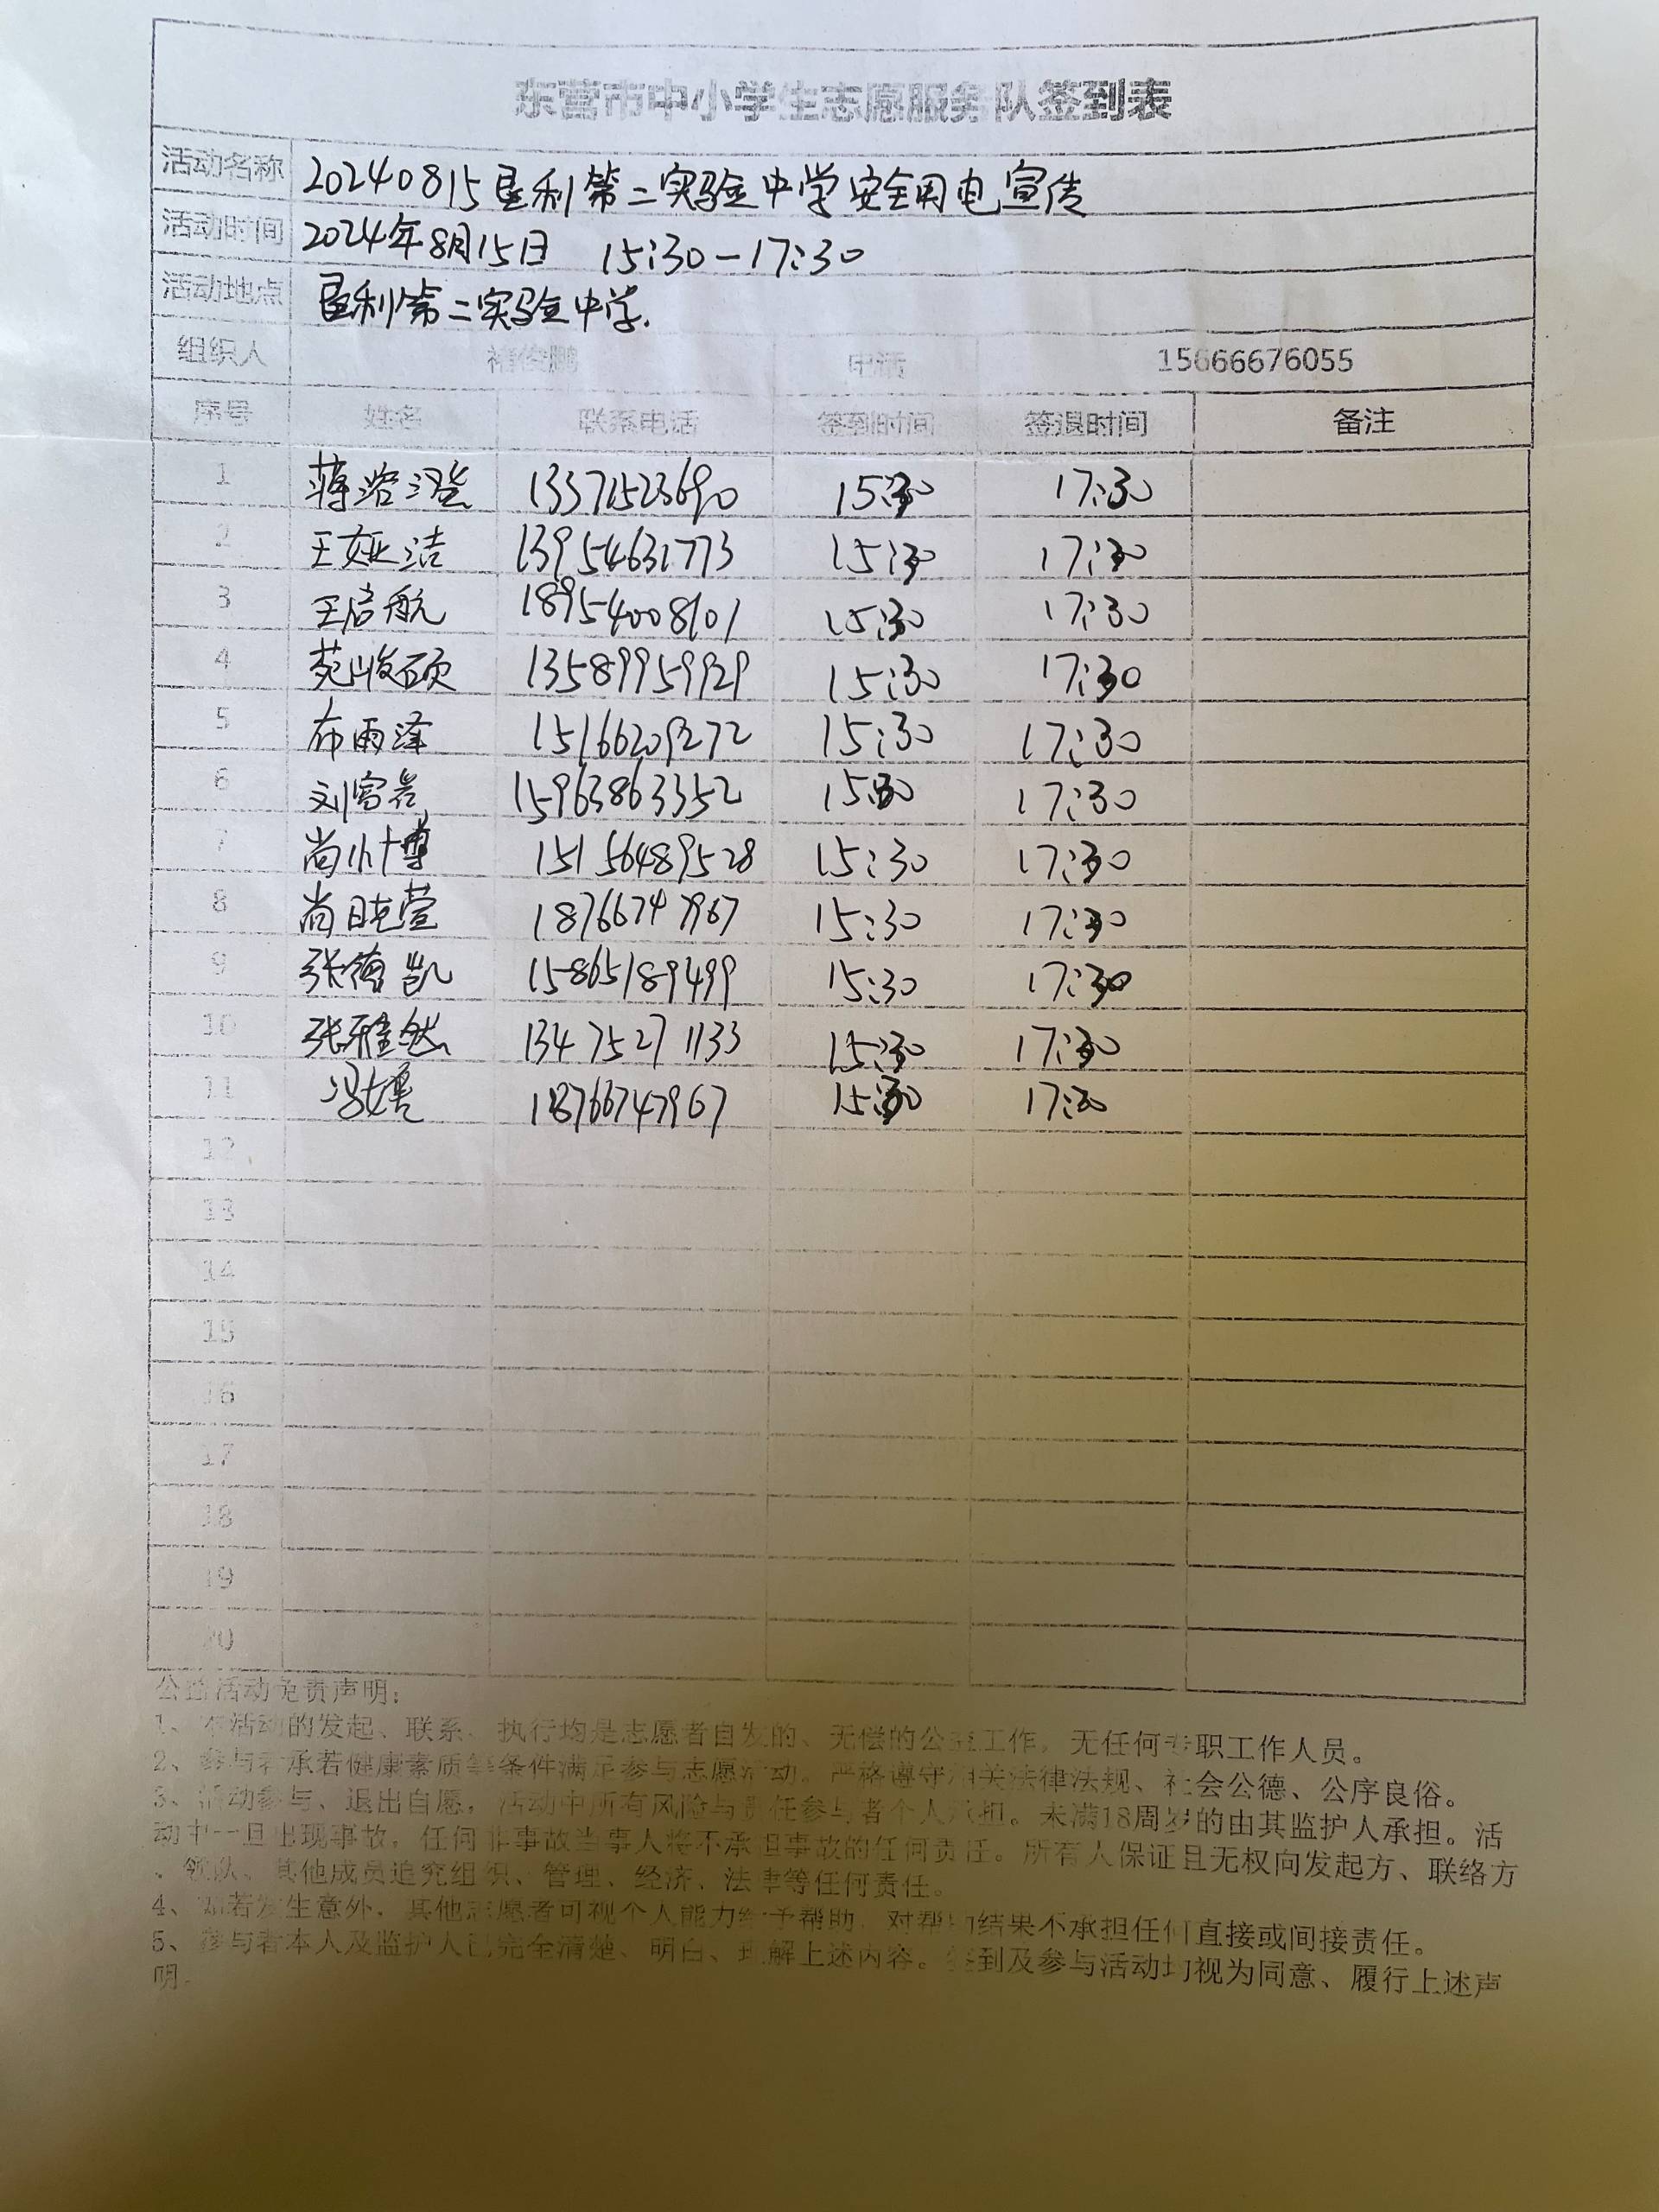 东营市中小学生志愿服务队签到表
活动名称 20240815垦利第二实验中学安全用电宣传
活动时间 2024年8月15日 15:30-17:30
活动地点 垦利第二实验中学.
组织人 褚俊鹏 电话 15666676055
序号 姓名 联系电话 签到时间 签退时间 备注
1 蒋洺澄 13371523690 15:30 17:30
2 王娅洁 13954631773 15:30 17:30
3 王启航 18954008101 15:30 17:30
4 苑峻硕 13589959929 15:30 17:30
5 布雨泽 15166209272 15:30 17:30
6 刘富岩 15963863352 15:30 17:30
7 尚博 15156489528 15:30 17:30
8 尚晓萱 18766747967 15:30 17:30
9 张德凯 15865189499 15:30 17:30
10 张雅然 13475271133 15:30 17:30
11 冯媛 18766747967 15:30 17:30
12
13
14
15
16
17
18
19
20
公益活动免责声明：
1、本活动的发起、联系、执行均是志愿者自发的、无偿的公益工作，无任何专职工作人员。
2、参与者承若健康素质等条件满足参与志愿活动。严格遵守相关法律法规、社会公德、公序良俗。
3、活动参与、退出自愿，活动中所有风险与责任参与者个人承担。未满18周岁的由其监护人承担。活
动中一旦出现事故，任何非事故当事人将不承担事故的任何责任。所有人保证且无权向发起方、联络方
、领队、其他成员追究组织、管理、经济、法律等任何责任。
4、如若发生意外，其他志愿者可视个人能力给予帮助，对帮助结果不承担任何直接或间接责任。
5、参与者本人及监护人已完全清楚、明白、理解上述内容。签到及参与活动均视为同意、履行上述声
明。